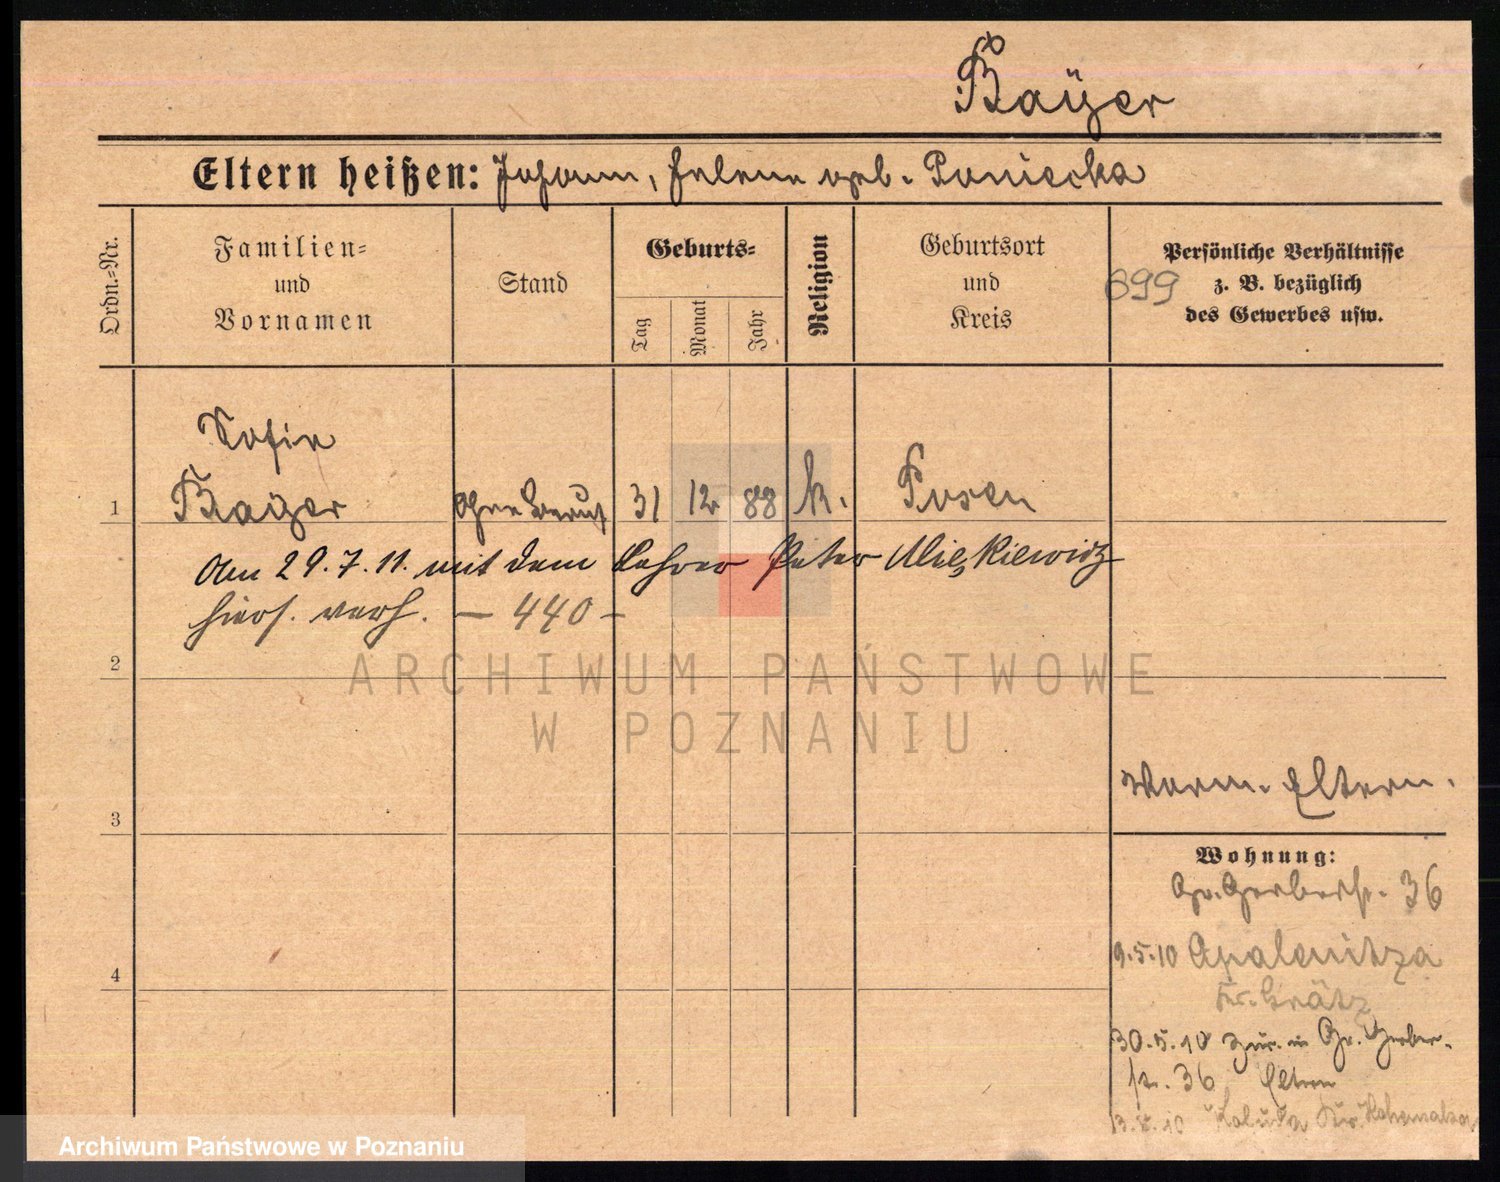 Bayer
Eltern heißen: Johann, Helene geb. Poniecka
Ordn.-Nr.
Familien- und Vornamen
Stand
Geburts-
Tag
Monat
Jahr
Religion
Geburtsort und Kreis
Persönliche Verhältnisse
z. B. bezüglich
des Gewerbes usw.
699
Sofie
1 Bayer ohne Beruf 31 12 88 k. Posen
Am 29.7.11. mit dem Lehrer Peter
hiers. verh. – 440 –
2
3
4
Eltern.
Wohnung:
Gr. Gerberstr. 36
9.5.10 Opalenitza
Kr. Grätz
30.5.10 zur. in Gr. Gerber-
str. 36 Eltern
10
ARCHIWUM PAŃSTWOWE
W POZNANIU
Archiwum Państwowe w Poznaniu